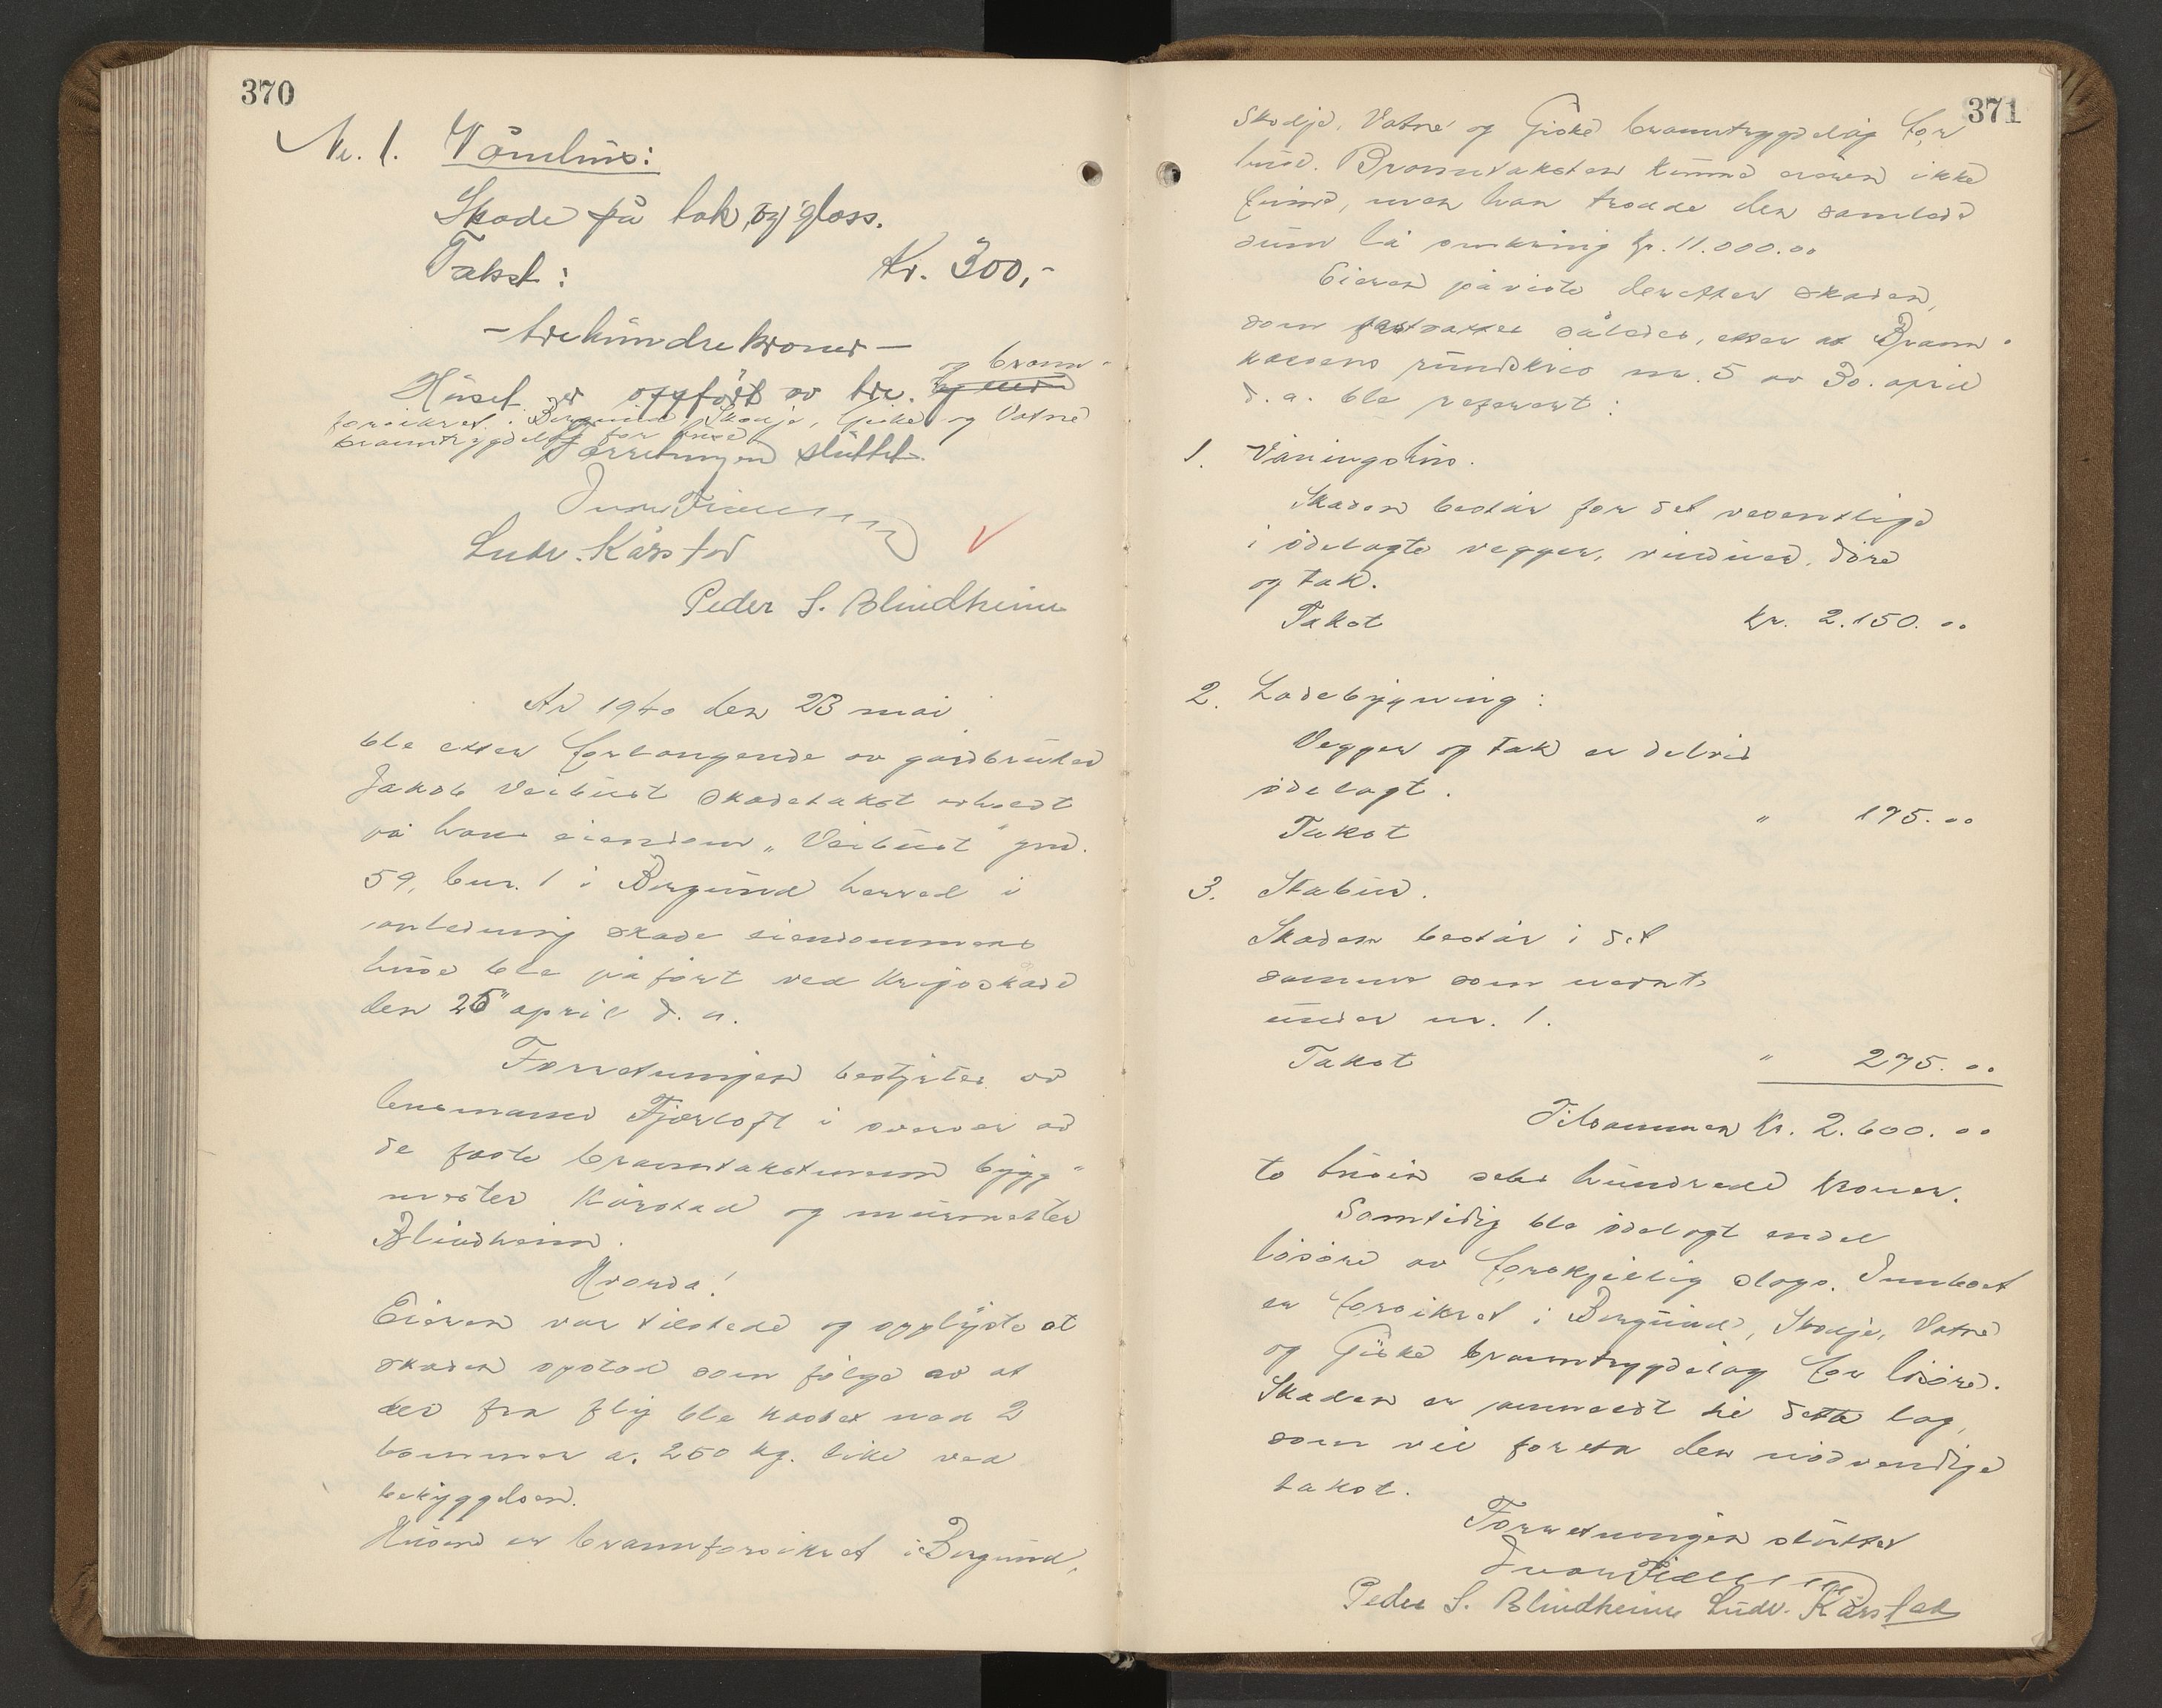 370
Nr. 1. Vånhus:
Skade på tak og glass.
Takst: Kr. 300,-
- trehundrekroner -
og brann-
Huset er oppført av tre.
forsikret i Borgund, Skodje, Giske og Vatne
branntrygdelag for huse
Forretningen sluttet.
Ludv. Kårstad
Peder S. Blindheim
År 1940 den 23 mai
ble etter forlangende av gårdbruker
Jakob Veibust skadetakst avholdt
på hans eiendom „Veibust" gnr.
59, bnr. 1 i Borgund herred i
anledning skade eiendommens
huse ble påført ved krigsskade
den 25" april d. a.
Forretningen bestyrtes av
lensmann Fjørtoft i overvær av
de faste branntakstmenn bygg-
mester Kårstad og murmester
Blindheim.
Hvorda!
Eieren var tilstede og opplyste at
skaden opstod som følge av at
der fra fly ble kastet ned 2
bommer a. 250 kg. like ved
bebyggelsen.
Husene er brannforsikret i Borgund,
371
Skodje, Vatne og Giske branntrygdelag for
huse. Branntaksten kunne eieren ikke
finne, men han trodde den samlede
sum lå omkring kr. 11.000.00
Eieren påviste deretter skaden,
som fastsattes således, etter at Brann-
kassens rundskriv nr. 5 av 30. april
d. a. ble referert:
1. Våningshus.
Skaden består for det vesentlige
i ødelagte vegger, vinduer, døre
og tak.
Takst kr. 2.150.00
2. Ladebygning:
Vegger og tak er delvis
ødelagt.
Takst " 175.00
3. Stabur.
Skaden består i det
samme som nevnt
under nr. 1.
Takst " 275.00
Tilsammen kr. 2.600.00
to tusin seks hundrede kroner.
Samtidig ble ødelagt endel
løsøre av forskjellig slags. Innboet
er forsikret i Borgund, Skodje, Vatne
og Giske branntrygdelag for løsøre.
Skaden er anmeldt til dette lag,
som vil foreta den nødvendige
takst.
Forretningen sluttet
Peder S. Blindheim Ludv. Kårstad